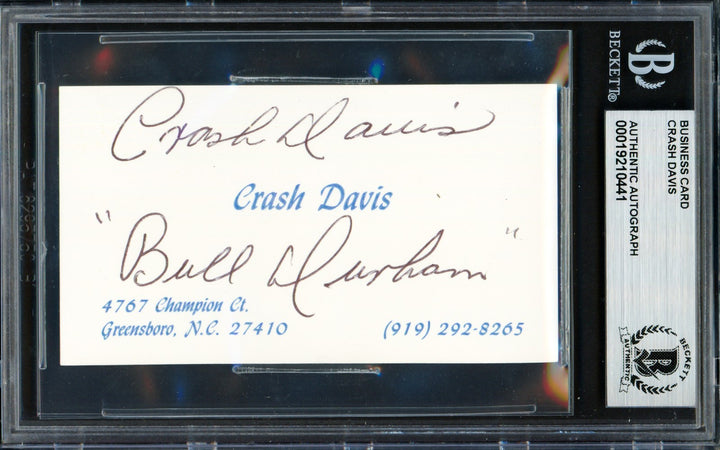 Crash Davis
Crash Davis
"Bull Durham"
4767 Champion Ct.
Greensboro, N.C. 27410
(919) 292-8265
BECKETT®
BUSINESS CARD
CRASH DAVIS
AUTHENTIC AUTOGRAPH
00019210441
BECKETT
AUTHENTIC